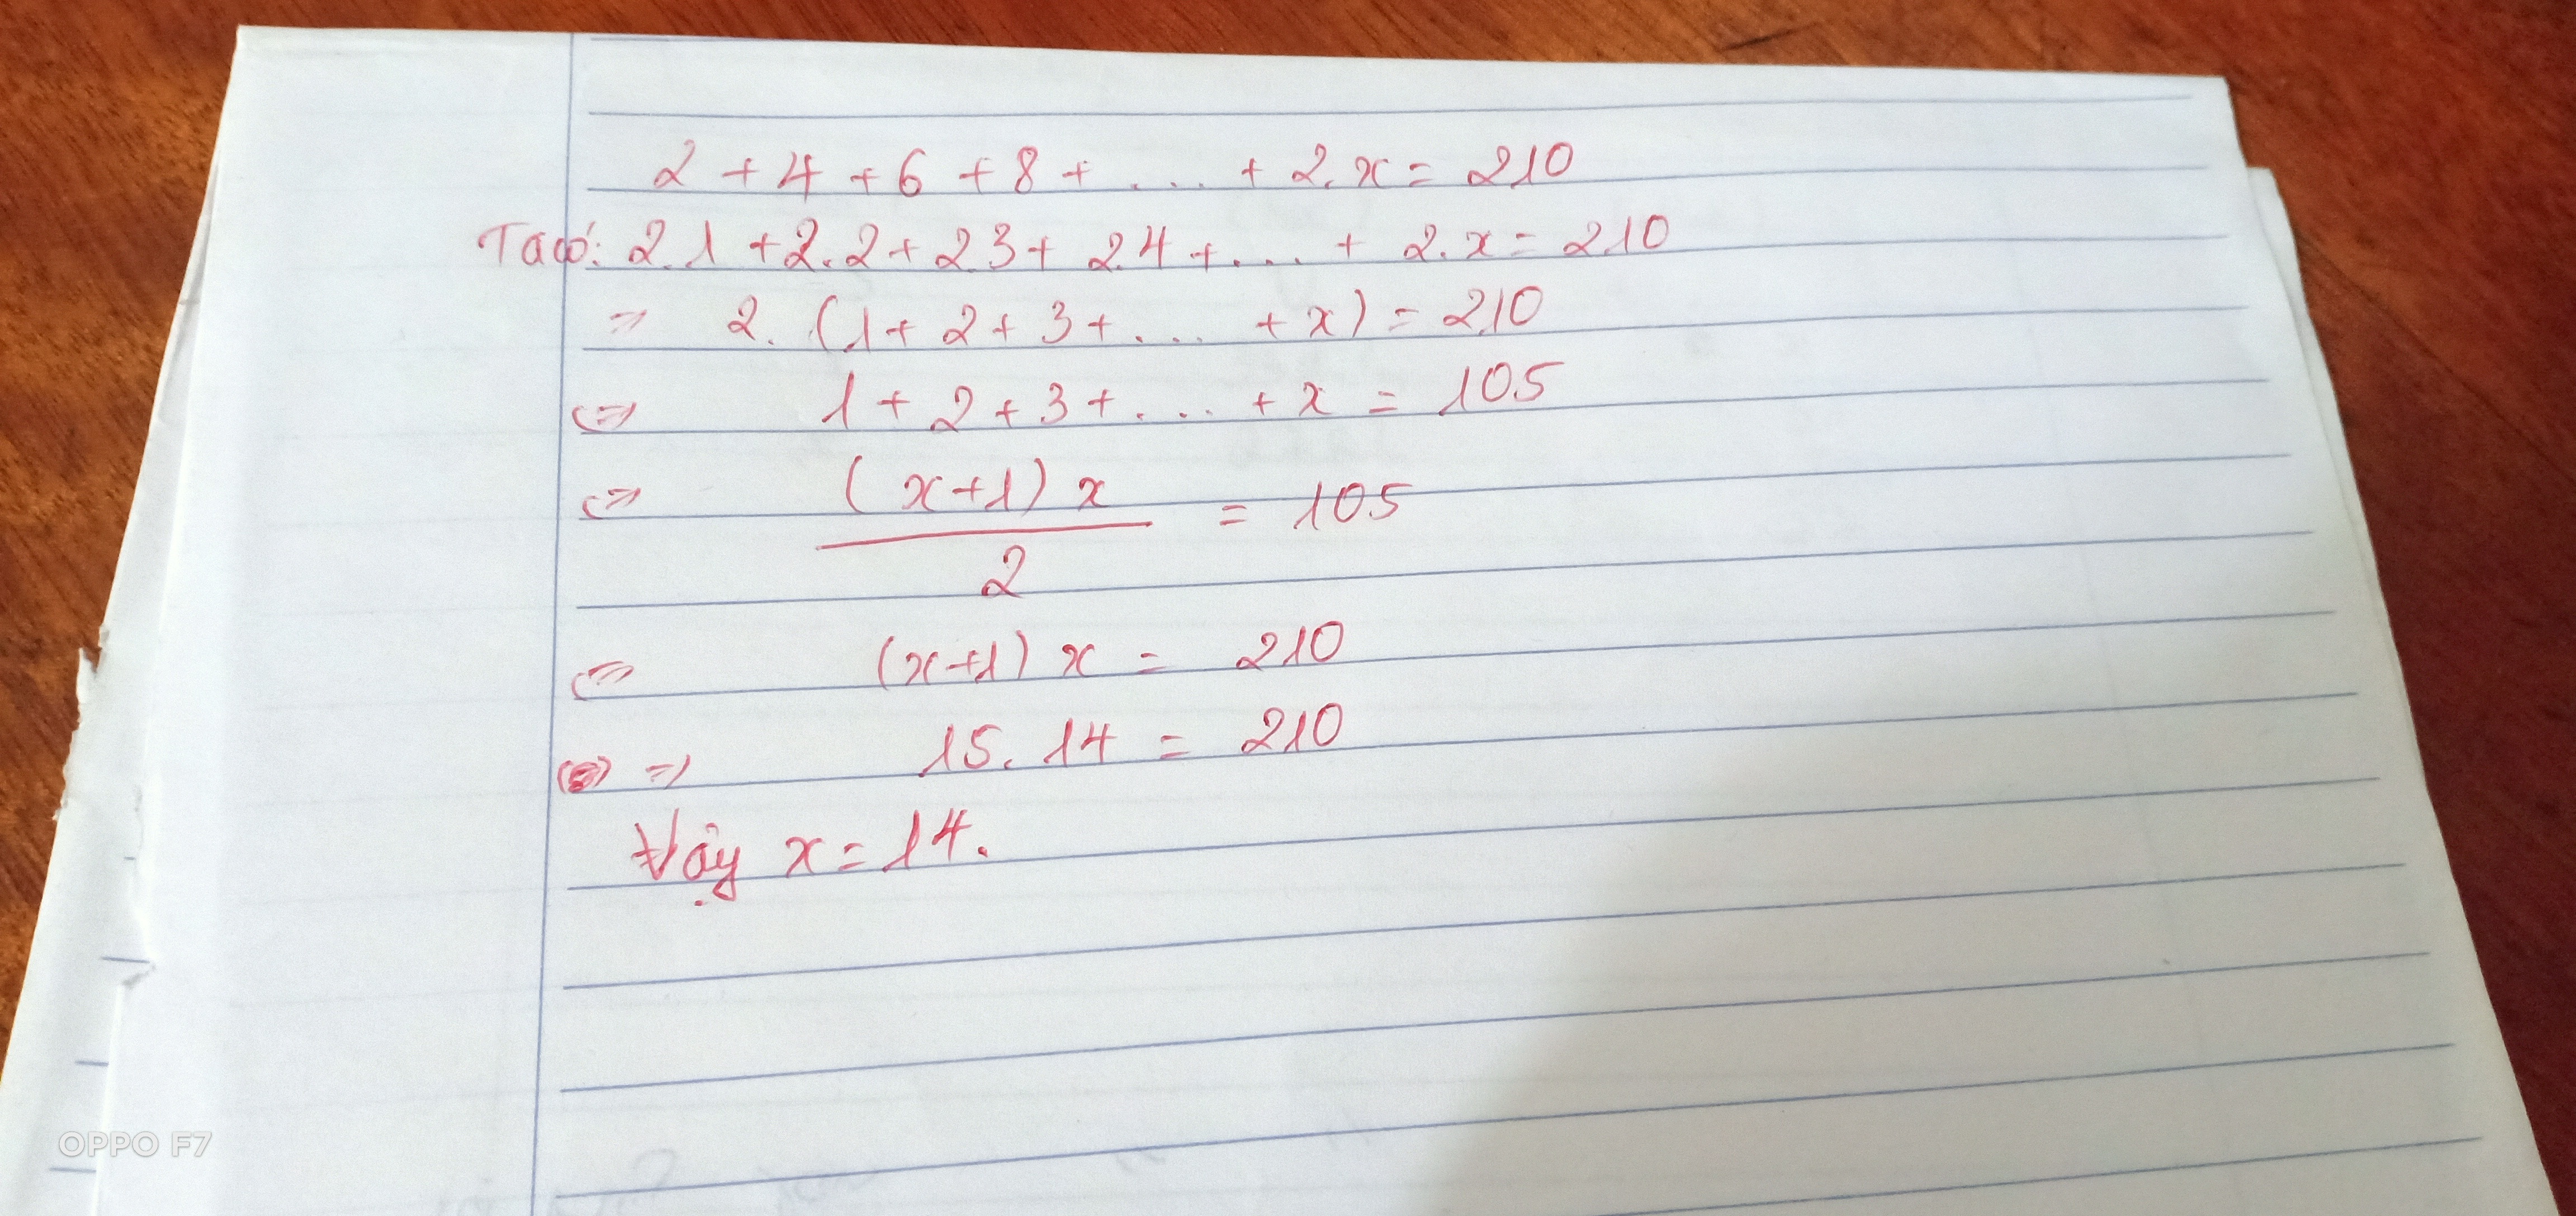 2 + 4 + 6 + 8 + .... + 2.x = 210
Ta có: 2.1 + 2.2 + 2.3 + 2.4 + .... + 2.x = 210
=> 2. (1 + 2 + 3 + .... + x) = 210
<=> 1 + 2 + 3 + .... + x = 105
<=> (x+1) x / 2 = 105
<=> (x+1) x = 210
=> 15. 14 = 210
Vậy x = 14.
OPPO F7